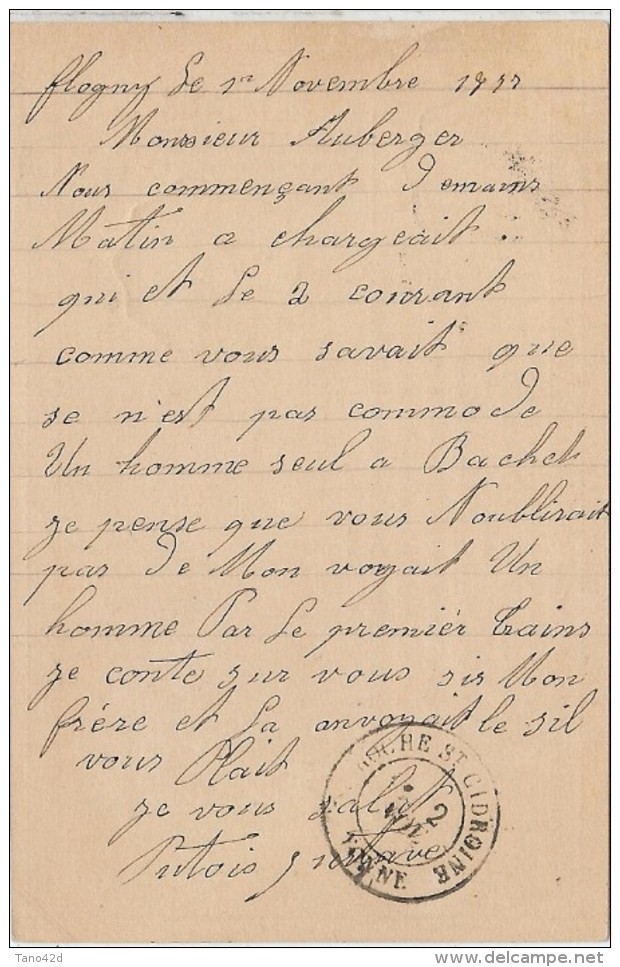 flogny Le 1er Novembre 1777
Monssieur Auberger
Nous commençant Demains
Matin a chargeait.
qui et Le 2 courant
comme vous savait que
se n'est pas commode
Un homme seul a Bachet
je pense que vous Noublirait
pas De Mon voyait Un
homme Par Le premier trains
je conte sur vous sis Mon
frère et La anvoyait le sil
vous Plait
je vous salut
Putois
2
NOV
ST CIDROINE
YONNE
Tano42d
©delcampe.net